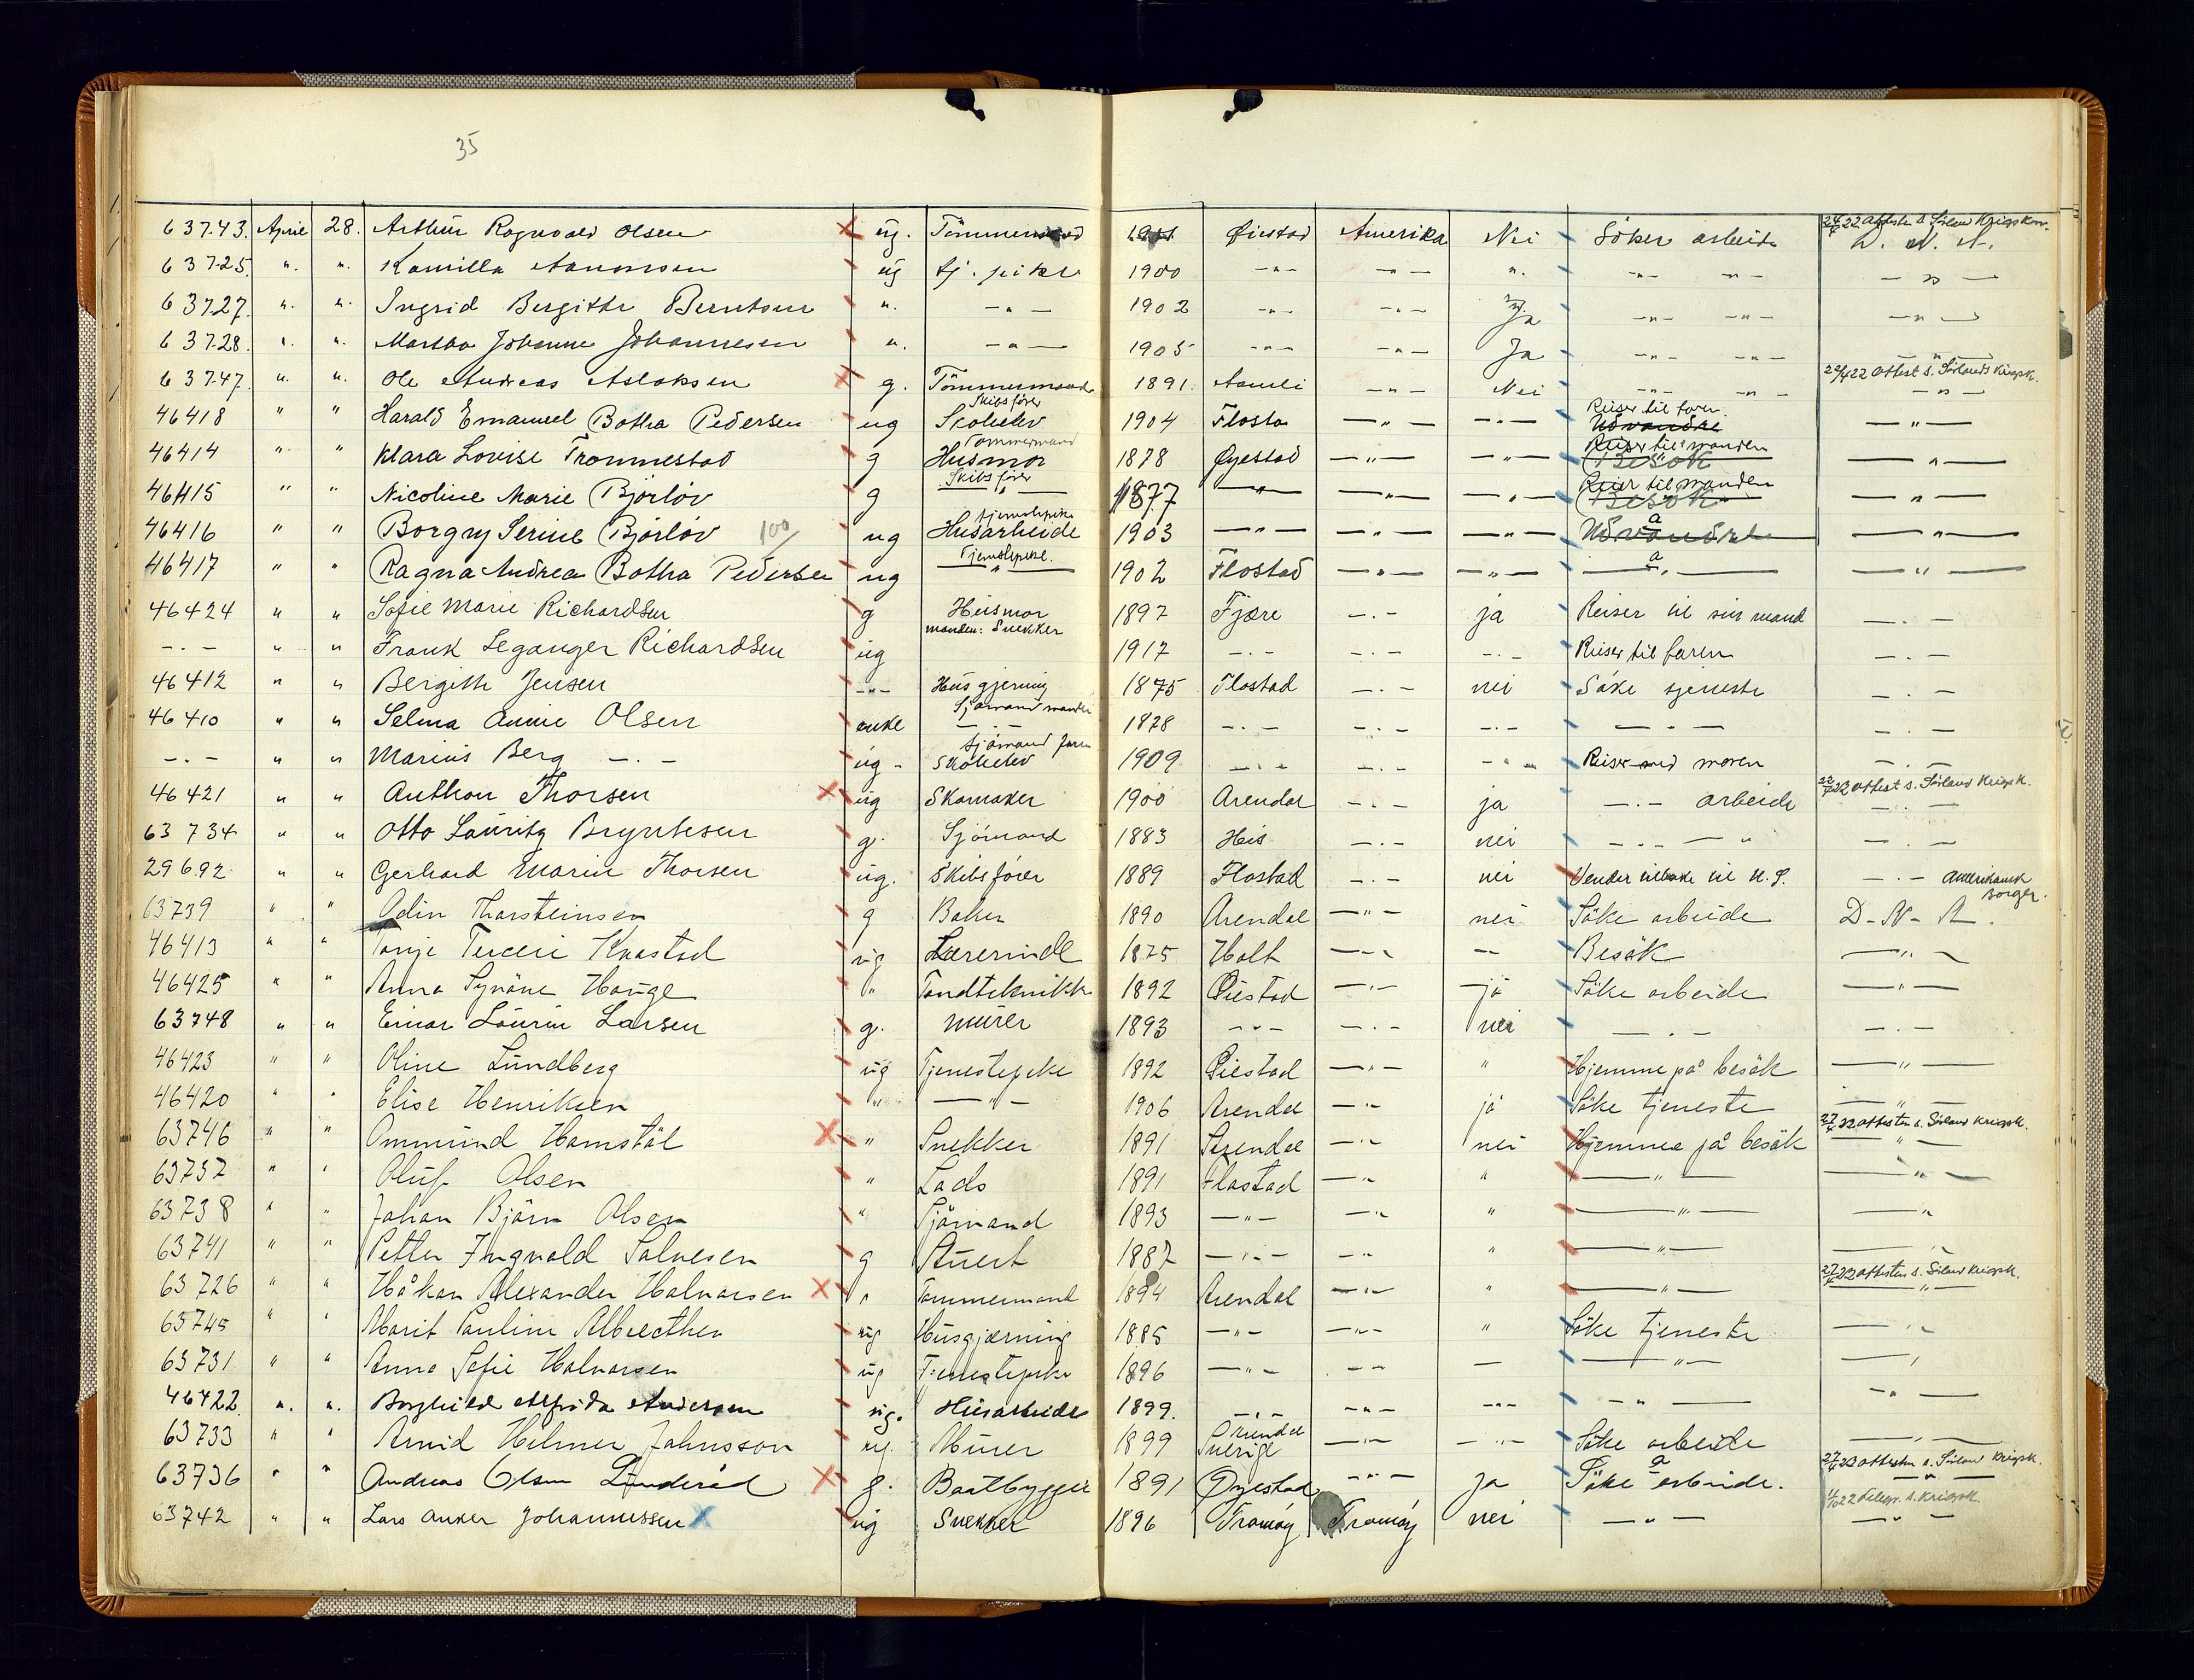 35
63743. April 28. Arthur Ragnvald Olsen ug. Öiestad Amerika Nei Söker arbeide 24/4 22 Attesten s. Sörland Krigskom. D. N. A.
63725. „ „ Kamilla Aanonsen ug tj. pike 1900 -„- -„- „ -„- -„- -„-
63727. „ „ Ingrid Bergitte Berntsen „ -„- 1902 -„- -„- Ja -„- -„- -„-
63728. „ „ Martha Johanne Johannesen „ -„- 1905 -„- -„- Ja -„- -„- -„-
63747. „ „ Ole Andreas Aslaksen g. Tömmermand 1891. Aamli -„- Nei -„- -„- 22/4 22 Attest s. Sörlands Krigsk. -„-
46418 „ „ Harald Emanuel Botha Pedersen ug Skibsförer Skoleelev 1904 Flosta -„- -„- Reiser til faren. Udvandre -„-
46414 „ „ Klara Lovise Trommestad g Tömmermand Husmor 1878 Öyestad -„- -„- Reiser til manden Besök -„-
46415 „ „ Nicoline Marie Björlöv g Skibsförer -„- 1877 -„- -„- -„- Reiser til manden Besök -„-
46416 „ „ Borgny Serine Björlöv 100 ug Tjenestepike Husarbeide 1903 -„- -„- -„- a Udvandre -„-
46417 „ „ Ragna Andrea Botha Pedersen ug Tjenestepike. -„- 1902 Flostad -„- -„- a -„- -„-
46424 „ „ Sofie Marie Richardsen g Husmor manden: Snekker 1897 Fjære -„- ja Reiser til sin mand -„-
-„- „ „ Frank Leganger Richardsen ug 1917 -„- -„- -„- Reiser til faren -„-
46412 „ „ Bergith Jensen -„- Husgjerning 1875 Flostad -„- nei Söke tjeneste -„-
46410 „ „ Selma Annie Olsen enke Sjömand manden -„- 1878 -„- -„- -„- -„- -„-
-„- „ „ Marius Berg -„- ug- Sjömand faren Skoleelev 1909 -„- -„- -„- Reiser med moren -„-
46421 „ „ Anthon Thorsen ug Skomaker 1900 Arendal -„- ja -„- arbeide 22/4 22 attest s. Sörland Krigsk. -„-
63734 „ „ Otto Lauritz Bryntesen g. Sjömand 1883 His -„- nei -„- „ -„-
29692 „ „ Gerhard Marin Thorsen ug. Skibsförer 1889 Flostad -„- nei Vender tilbake til U.S. -„- Amerikansk Borger.
63739 „ „ Odin Thorsteinsen g Baker 1890 Arendal -„- nei Söke arbeide D-N-A.
46413 „ „ Knastad ug Lærerinde 1875 Holt -„- -- Besök -„-
46425 „ „ Anna Synöve Hauge „ Tandteknikker 1892 Öiestad -„- ja Söke arbeide -„-
63748 „ „ Einar Laurin Larsen g. Murer 1893 -„- -„- nei -„- -„-
46423 „ „ Oline Lundberg ug Tjenestepike 1892 Öiestad -„- „ Hjemme på besök -„-
46420 „ „ Elise Henriksen „ -„- 1906 Arendal -„- ja Söke tjeneste -„-
63746 „ „ Ommund Hamstöl „ Snekker 1891 Arendal -„- nei Hjemme på besök 27/4 22 attesten s. Sörland Krigsk. -„-
63737 „ „ Oluf Olsen „ Lods 1891 Flostad -„- „ -„- -„-
63738 „ „ Johan Björn Olsen „ Sjömand 1893 -„- -„- „ -„- -„-
63741 „ „ Petter Ingvald Salvesen g Stuert 1887 -„- -„- „ -„- -„-
63726 „ „ Håkan Alexander Halvorsen „ Tømmermand 1894 Arendal -„- „ -„- 27/4 22 attesten s. Sörland Krigsk. -„-
63745 „ „ Marit Pauline Albrecthen ug Husgjærning 1885 -„- -„- „ Söke tjeneste -„-
63731 „ „ Anna Sofie Halvorsen ug Tjenestepike 1896 -„- -„- — -„- -„-
46422 „ „ Borghild Alfrida Andersen ug. Husarbeide 1899. -„- -„- -„- -„- -„-
63733 „ „ Arvid Hilmer Johnsson ug. Murer 1899 Arendal Sverige -„- -„- Söke arbeide -„-
63736 „ „ Andreas Olsen Linderöd g. Baatbygger 1891 Öyestad -„- ja Söke arbeide. 27/4 22 attesten s. Sörland Krigsk. -„-
63742 „ „ Lars Anker Johannessen ug Snekker 1896 Tromöy Tromöy nei -„- Telegr. s. Krigsk. -„-